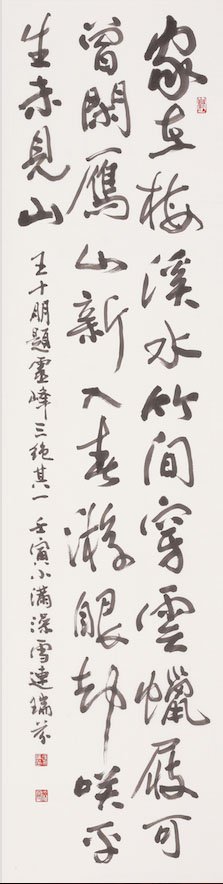 家在梅溪水竹間穿雲蠟屐可
曾閑鴈山新入春游眼却咲平
生未見山
王十朋題靈峰三絶其一 壬寅小滿澡雪連瑞芬